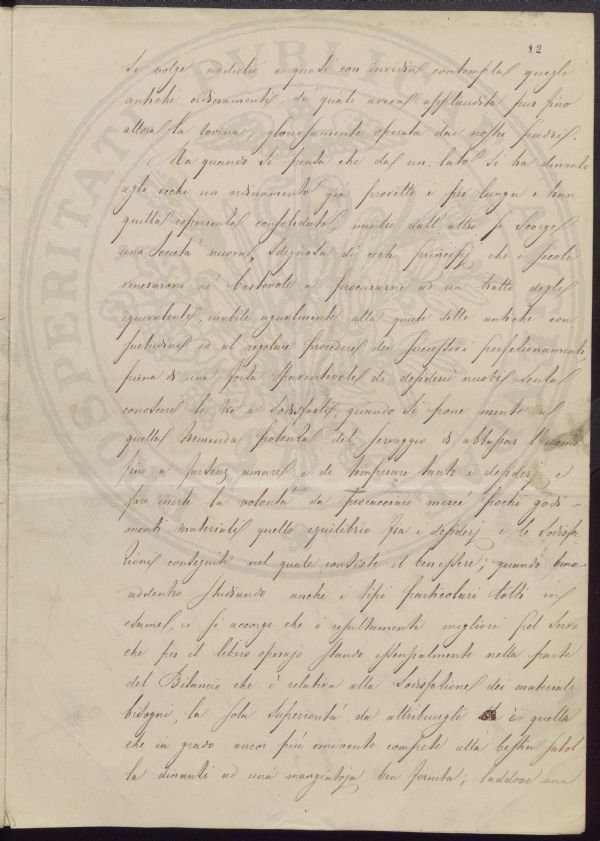 12
si volge addietro e quasi con invidia contempla quegli
antichi ordinamenti, de' quali aveva applaudita pur fino
allora la rovina, gloriosamente operata dai nostri padri.
Ma quando si pensa che dal un lato si ha dinanti
agli occhi un ordinamento già provetto e per lunga e tran
quilla esperienza consolidato, mentre dall'altro si scorge
una società nuova, sdegnosa di certi principj che i secoli
venerarono nè bastevole a procurarne ad un tratto degli
equivalenti, inabile egualmente alla quiete delle antiche con
suetudini ed al regolare procedere dei successivi perfezionamenti,
piena di una forza spaventevole di desiderii nuovi senza
conoscere le vie a sodisfarli; quando si pone mente a
quella tremenda potenza del servaggio di abbassar l'uomo
fino a farsene amare e di temperare tanto i desiderj e
fare inerte la volontà da procacciare mercè pochi godi-
menti materiali quello equilibrio tra i desiderj e le sodisfa
zioni conseguite nel quale consiste il ben essere; quando bene
addentro studiando anche i tipi particolari tolti in
esame, ci si accorge che i resultamenti migliori pel servo
che per il libero operajo stando essenzialmente nella parte
del Bilancio che è relativa alla sodisfazione dei materiali
bisogni, la sola superiorità da attribuirgli è quella
che in grado ancor più eminente compete alla bestia satol
la dinanti ad una mangiatoja ben fornita; laddove una
OSPERITATI PUBLICAE